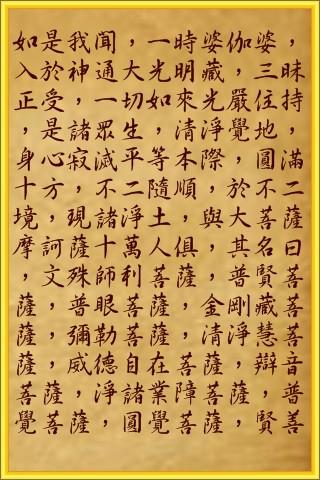 如是我聞，一時婆伽婆，
入於神通大光明藏，三昧
正受，一切如來光嚴住持
，是諸眾生，清淨覺地，
身心寂滅平等本際，圓滿
十方，不二隨順，於不二
境，現諸淨土，與大菩薩
摩，訶薩十萬人俱，其名曰
，文殊師利菩薩，普賢菩
薩，普眼菩薩，金剛藏菩
薩，彌勒菩薩，清淨慧菩
薩，威德自在菩薩，辯音
菩薩，淨諸業障菩薩，普
覺菩薩，圓覺菩薩，賢善